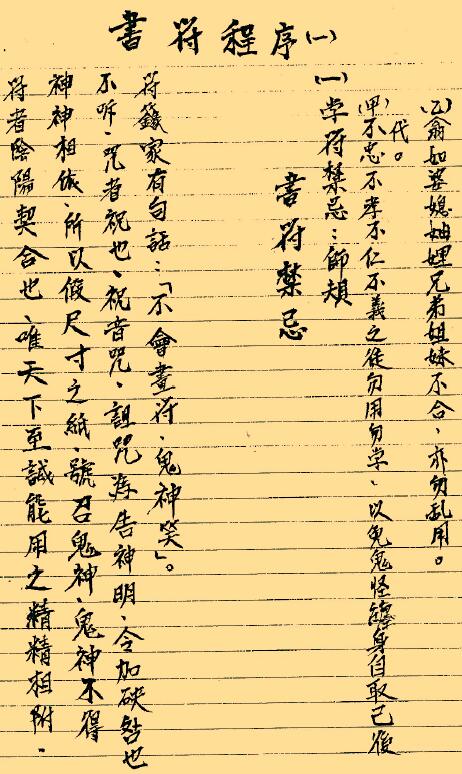 書符程序(一)
(乙)翁姑婆媳妯娌兄弟姐妹不合、亦勿乱用。
代。
(甲)不忠不孝不仁不义之徒勿用勿学、以免鬼怪缠身自取己後
(一)学符禁忌:師規
書符禁忌
符籙家有句話:「不會畫符、鬼神笑」。
不听、咒者祝也、祝音咒、詛咒為告神明、令加殃咎也
神神相依、所以假尺寸之紙、號召鬼神、鬼神不得
符者陰陽契合也、唯天下至誠能用之精精相附.